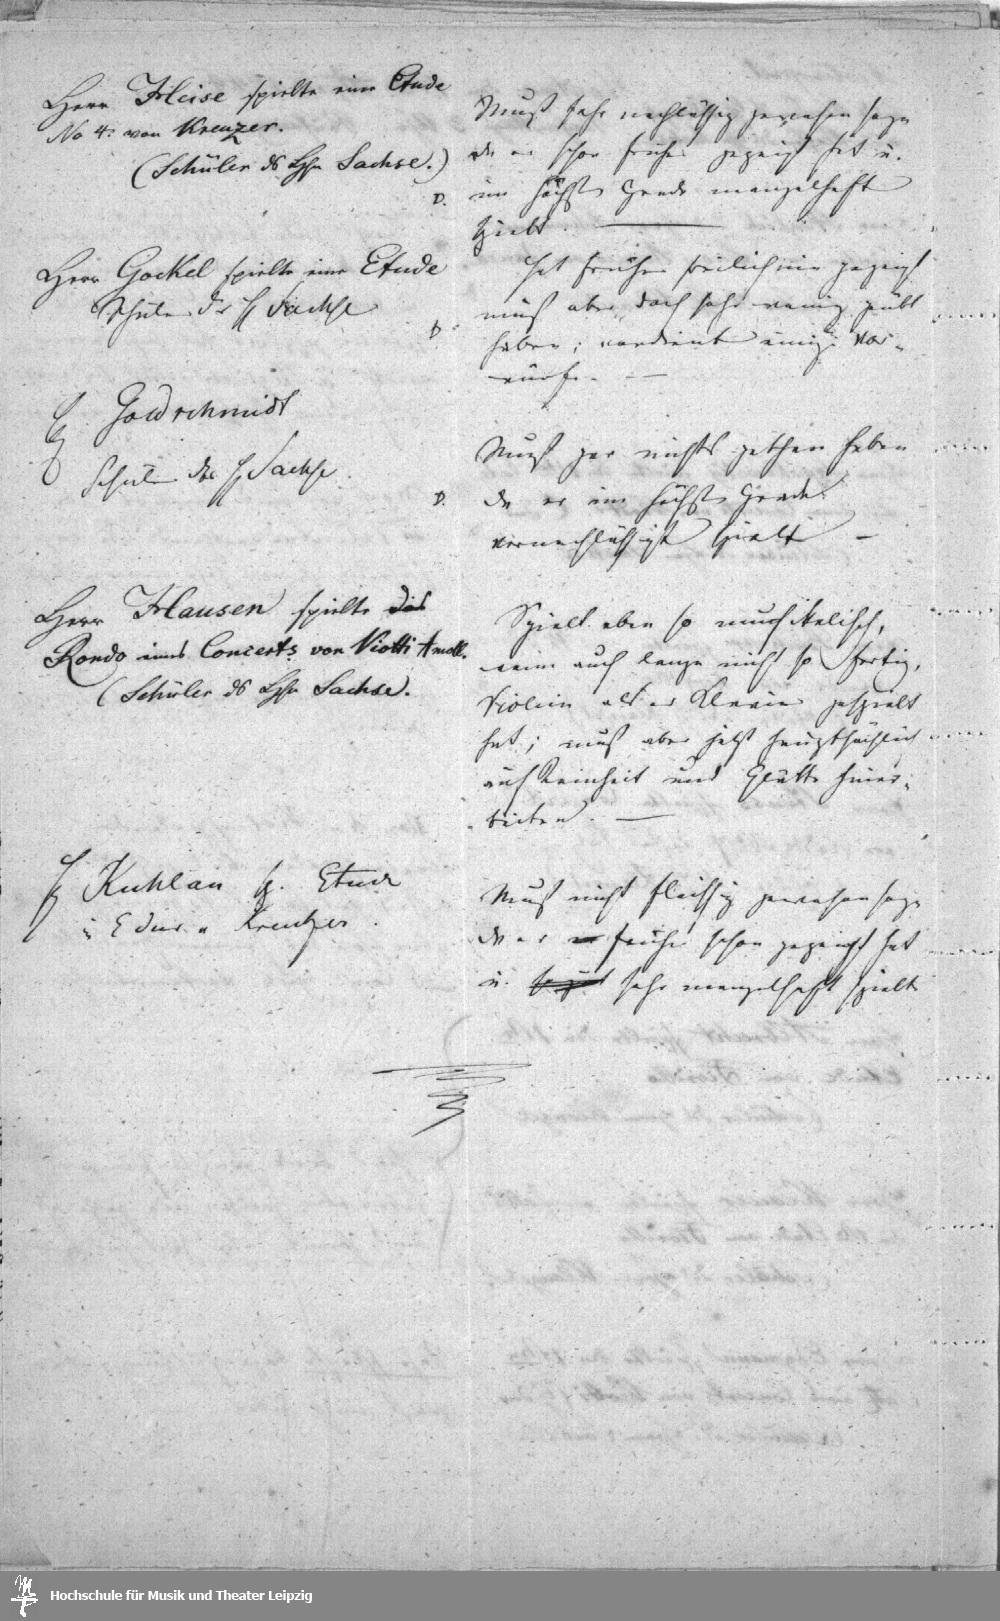 Herr Heise spielte eine Etude
No 4. von Kreuzer.
(Schüler ds Hrn Sachse.)
D.
Muß sehr nachlässig gewesen sein
da er schon früher gezeigt hat u.
im höchsten Grade mangelhaft
spielt. —
Herr Gockel spielte eine Etude
Schüler des H Sachse
D.
Hat früher freilich nie gezeigt
muß aber doch sehr wenig geübt
haben; verdient einige Vor-
würfe. —
H Goldschmidt
Schüler des H Sachse.
D.
Muß gar nichts gethan haben
da er im höchsten Grade
vernachlässigt spielt —
Herr Hausen spielte das
Rondo eines Concerts von Viotti Amoll.
(Schüler ds Hrn Sachse.
Spielt eben so musikalisch,
wenn auch lange nicht so fertig,
Violin als er Klavier gespielt
hat; muß aber jetzt hauptsächlich
auf Reinheit und Glätte hinar-
beiten. —
H Kuhlau sp. Etude
in E dur v Kreutzer.
Muß nicht fleißig gewesen sein
da er früher schon gezeigt hat
u. sehr mangelhaft spielt
Hochschule für Musik und Theater Leipzig